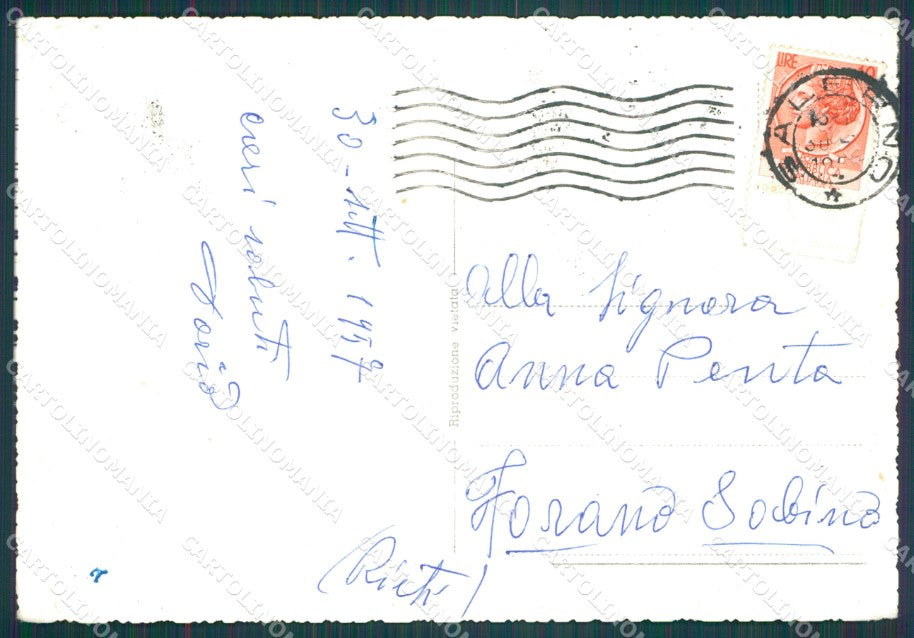 30-sett. 1957
cari saluti
LIRE 10
SALERNO
30
Riproduzione vietata
Alla Signora
Anna Penta
Forano Sabina
(Rieti)
CARTOLINOMANIA